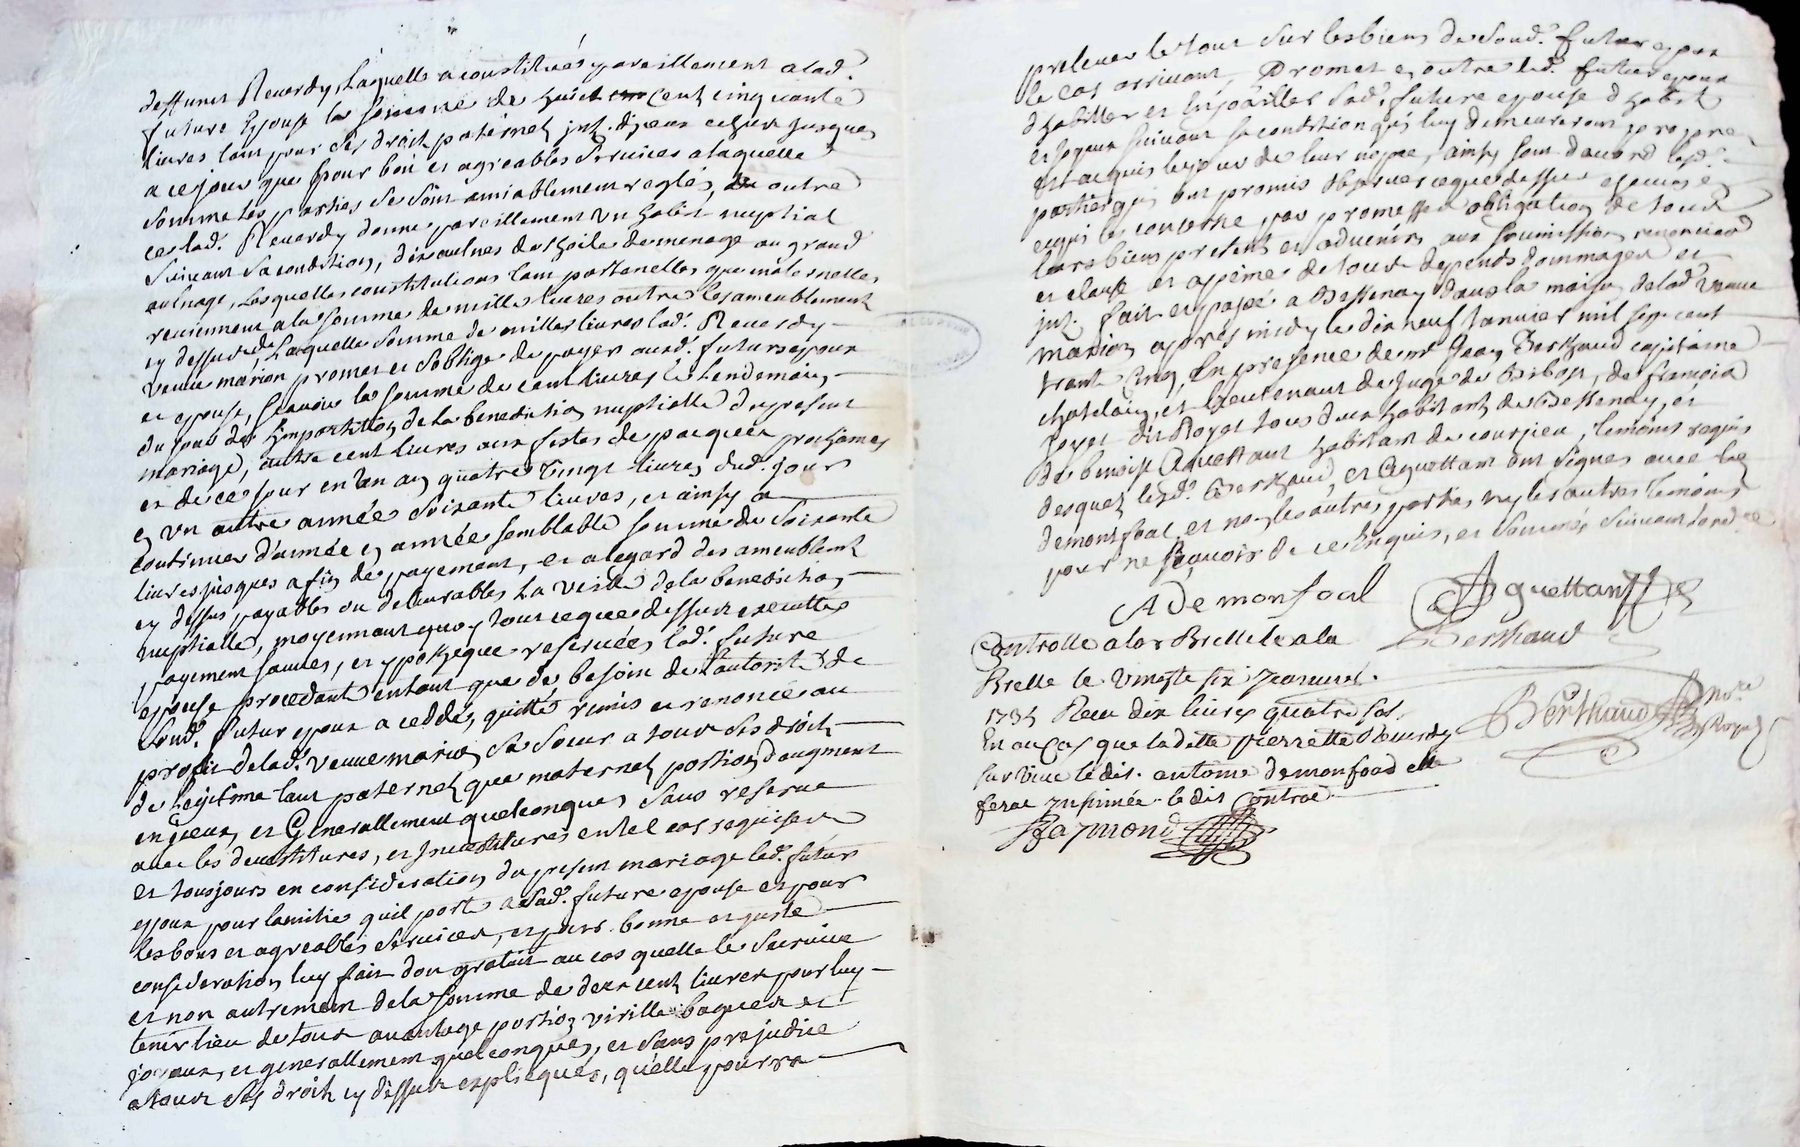 deffunct Reuerdy, Laquelle a constituées pareillement a lad.
future Epouse la somme de huict cent cinquante
liures tant pour ses droit paternel, jnt. d'jceux escheux jusques
a ce jour que pour bon et agreables Seruices a laquelle
somme les parties se sont amiablement reglés, outre
ce lad. Reuerdy donne pareillement un habit nuptial
Suiuant Sa condition, dix aulnes de thoile de menage au grand
aulnage, Lesquelles constitutions tant paternelles que maternelles
reuiennent a la somme de mille liures outre les ameublement
cy dessus de Laquelle somme de milles liures lad. Reuerdy
Veuue marion promet et s'oblige de payer aud. futur epoux
et epouse, Scauoir la somme de cent liures le Lendemain
du jour de L'impartition de la benediction nuptialle du present
mariage, autre cent liures aux festes de pacques prochaines
et de ce jour en un an quatre Vingt liures dud. jour
en un autre année Soixante liures, et ainsy a
continuer d'année en année semblable somme de Soixante
liures jusques a fin de payement, et a legard des ameublement
cy dessus payables ou deliurables La veille de la benediction
nuptialle, moyennant quoy tout ce que dessus executté
payement sauues, et ypotheque reseruées lad. future
epouse procedant entant que de besoin de l'autorité de
Sond. futur epoux a ceddé, quitté remis et renoncé au
profit de lad. Veuue marion, Sa Soeur a tous ses droit
de Legitime tant paternel que maternel portion d'augment
en jceux, et Generallement quelconques Sans reserue
auec les deuestitures, et Jnuestitures en tel cas requises
et tousjours en consideration du present mariage led. futur
epoux pour lamitie quil porte a Sad. future epouse et pour
les bons et agreables Seruices, et pour bonne et juste
consideration luy fait don gratuit au cas quelle le Suruiue
et non autrement de la somme de deux cent liures pour luy
tenir lieu de tous auantage portion virille bagues et
joyaux, et generallement quelconques, et Sans prejudice
a tous Ses droit cy dessus expliqués, quelle pourra
preleuer le tout Sur les biens de Sond. futur epoux
le cas arriuant, Promet en outre led. futur epoux
d'habiller et Enjoailler Sad. future epouse d'habit
et joyaux Suiuant sa condition qui luy demeureront propre
et acquis le jour de leur nopce, ainsy sont d'accord lesd.
parties qui ont promis obseruer ce que dessus chacun en
ce qui le concerne par promesse obligation de tous
leurs biens present et aduenir aux soumissions renonciaon
et clause et a peine de tous depends dommages et
jnt. fait et passé a Bessenay dans la maison de lad. Veuue
Marion apres midy le dix neuf Januier mil sept cent
trante Cinq, En presence de mr Jean Berthaud capitaine
chatelain, et Lieutenant de Juge de Bibost, de francois
Poyet dit Royet tous deux habitant de Bessenay, et
de benoist Aguettant habitant de courzieu, temoins requis
desquels lesd. Berthaud, et Aguettant ont Signes auec led.
demonfoal, et non les autres parties, ny les autres temoins
pour ne Scauoir de ce Enquis, et sommés Suiuant lord.ce
A Demonfoal Aguettant
Berthaud
Controlle a la Bresle a la
Bresle le Vingtt six januier
1735 Receu dix liures quatre sols
En au cas que ladette pierrette Reuerdy
suruiue ledit antoine demonfoad elle
feraz Insinuée le dit Contract
Berthaud Nore
Royal
Raymond